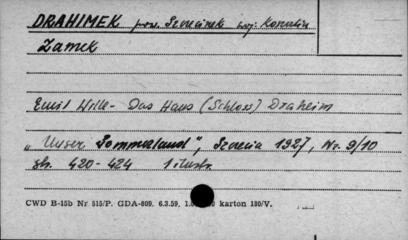 DRAHIMEK pow. Szczecinek woj. Koszalin
Zamek
Emil Hille - Das Haus (Schloss) Draheim
„Unser Pommerland", Szczecin 1927, Nr. 9/10
str. 420-424 1 ilustr.
CWD B-15b Nr 515/P. GDA-809. 6.3.59. karton 180/V.